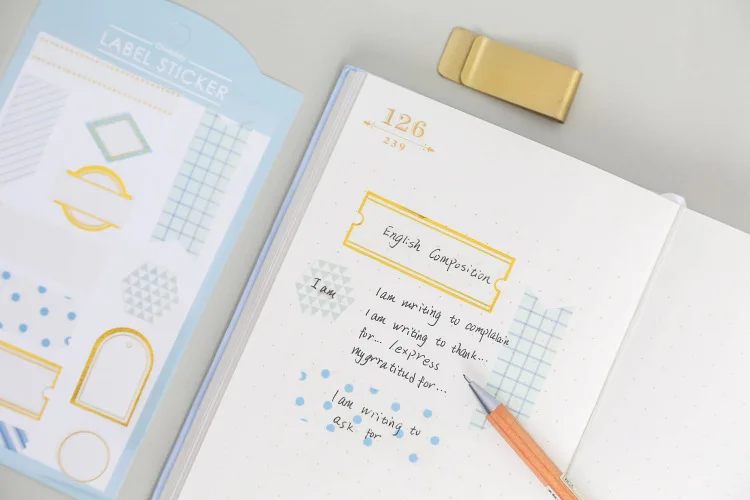 LABEL STICKER
126
239
English Composition
I am
I am writing to complain
I am writing to thank...
for... /express
mygratitud for...
I am writing to
ask for